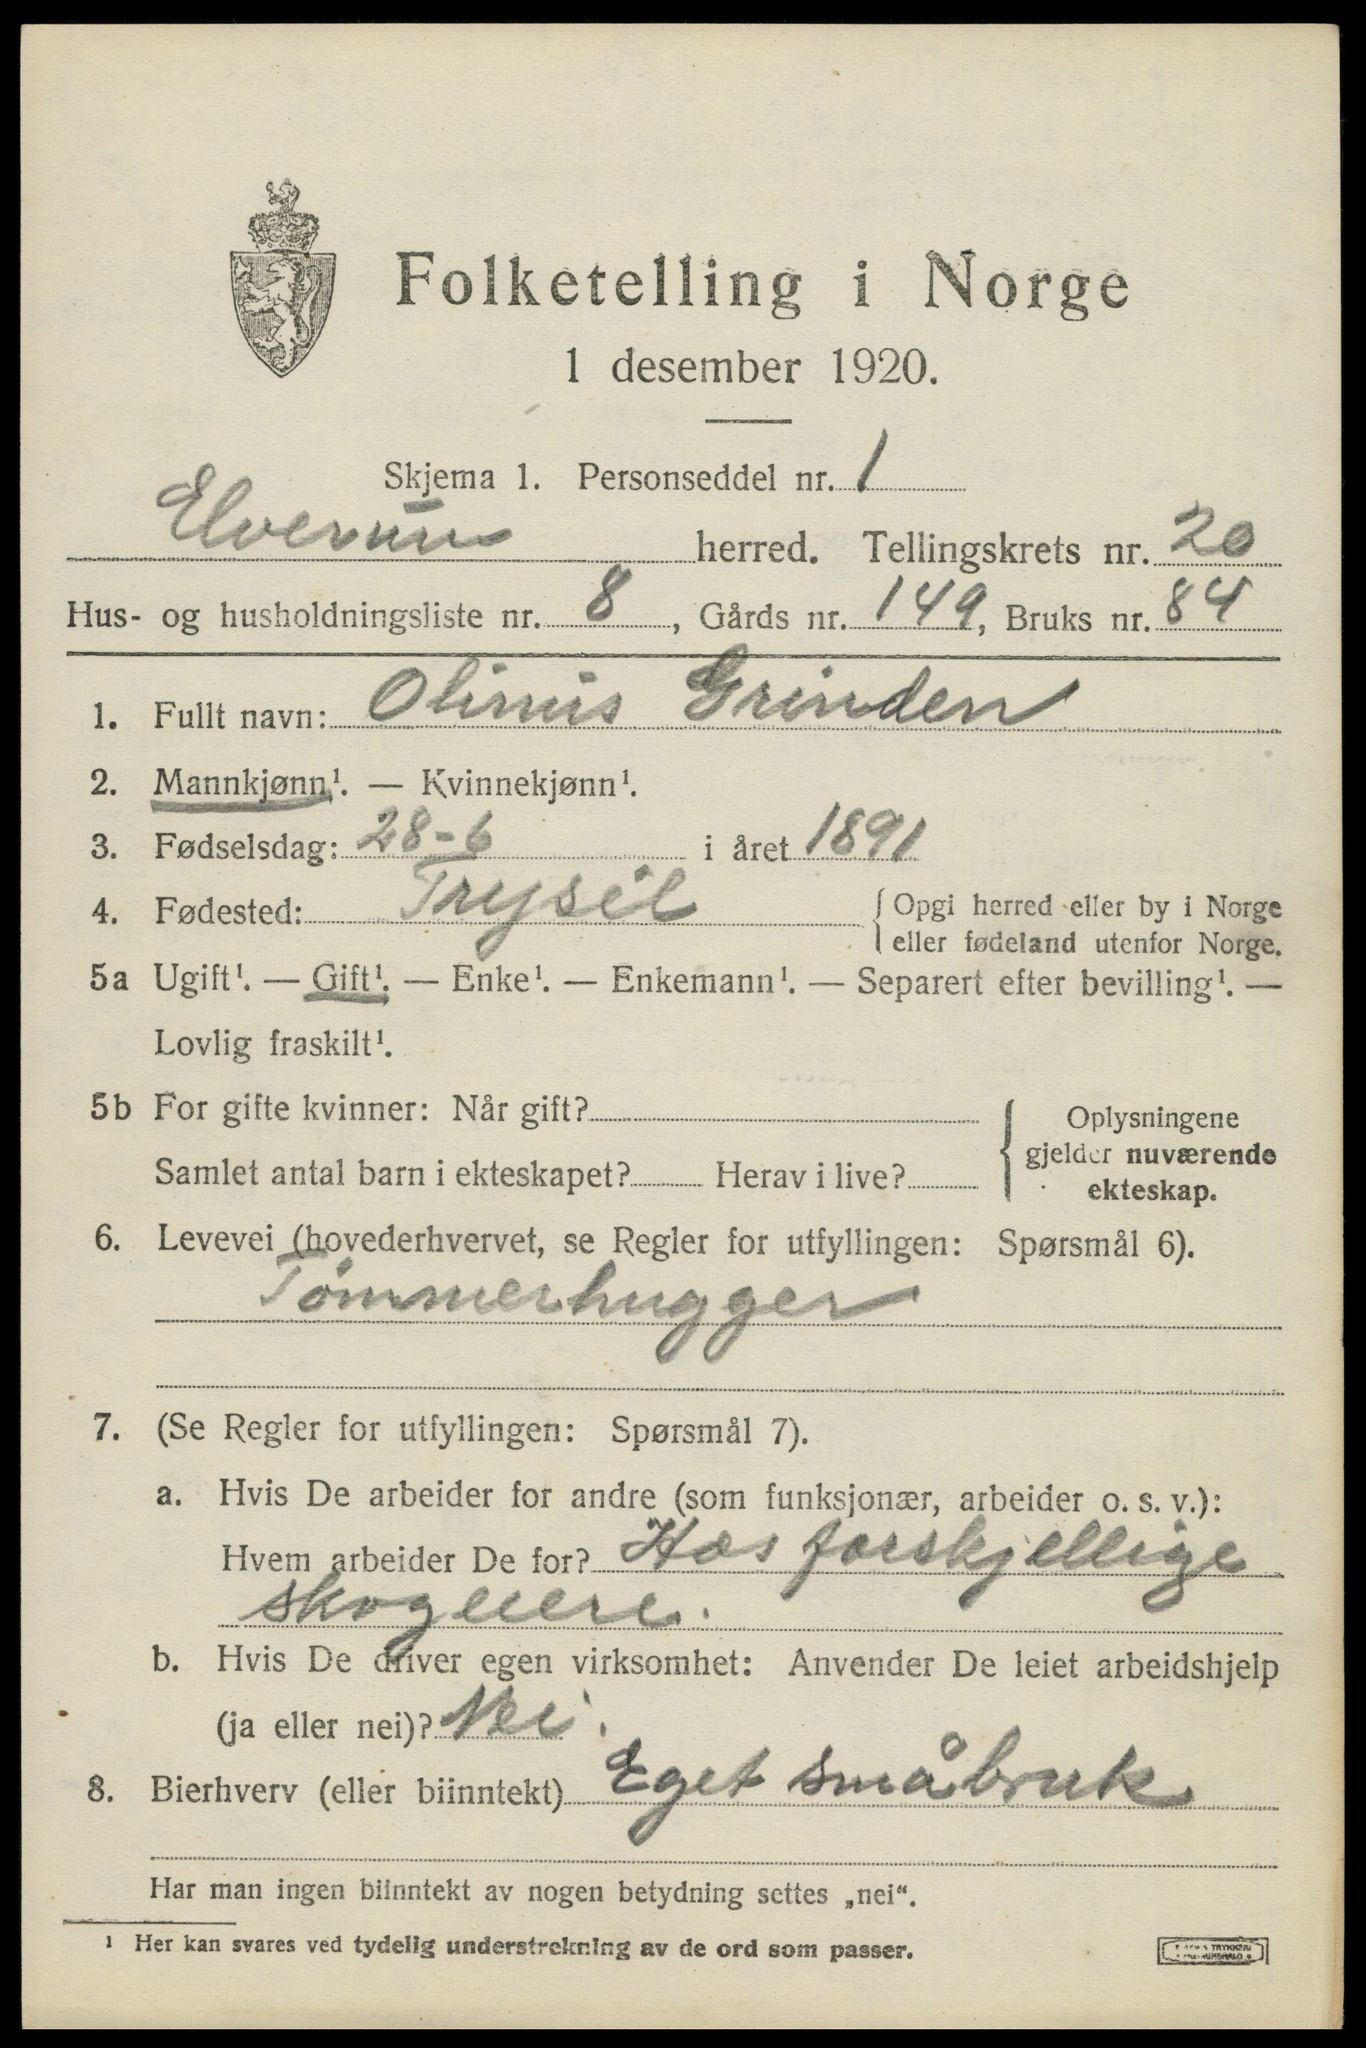 Folketelling i Norge
1 desember 1920.
Skjema 1. Personseddel nr. 1
Elverum herred. Tellingskrets nr. 20
Hus- og husholdningsliste nr. 8, Gårds nr. 149, Bruks nr. 84
1. Fullt navn: Olinus Grinden
2. Mannkjønn¹. — Kvinnekjønn¹.
3. Fødselsdag: 28-6 i året 1891
4. Fødested: Trysil {Opgi herred eller by i Norge
eller fødeland utenfor Norge.
5a Ugift¹. — Gift¹. — Enke¹. — Enkemann¹. — Separert efter bevilling¹. —
Lovlig fraskilt¹.
5b For gifte kvinner: Når gift?
Samlet antal barn i ekteskapet? Herav i live?
Oplysningene
gjelder nuværende
ekteskap.
6. Levevei (hovederhvervet, se Regler for utfyllingen: Spørsmål 6).
Tømmerhugger
7. (Se Regler for utfyllingen: Spørsmål 7).
a. Hvis De arbeider for andre (som funksjonær, arbeider o. s. v.):
Hvem arbeider De for? Hos forskjellige
skogeiere.
b. Hvis De driver egen virksomhet: Anvender De leiet arbeidshjelp
(ja eller nei)? Nei.
8. Bierhverv (eller biinntekt) Eget småbruk
Har man ingen biinntekt av nogen betydning settes „nei“.
¹ Her kan svares ved tydelig understrekning av de ord som passer.